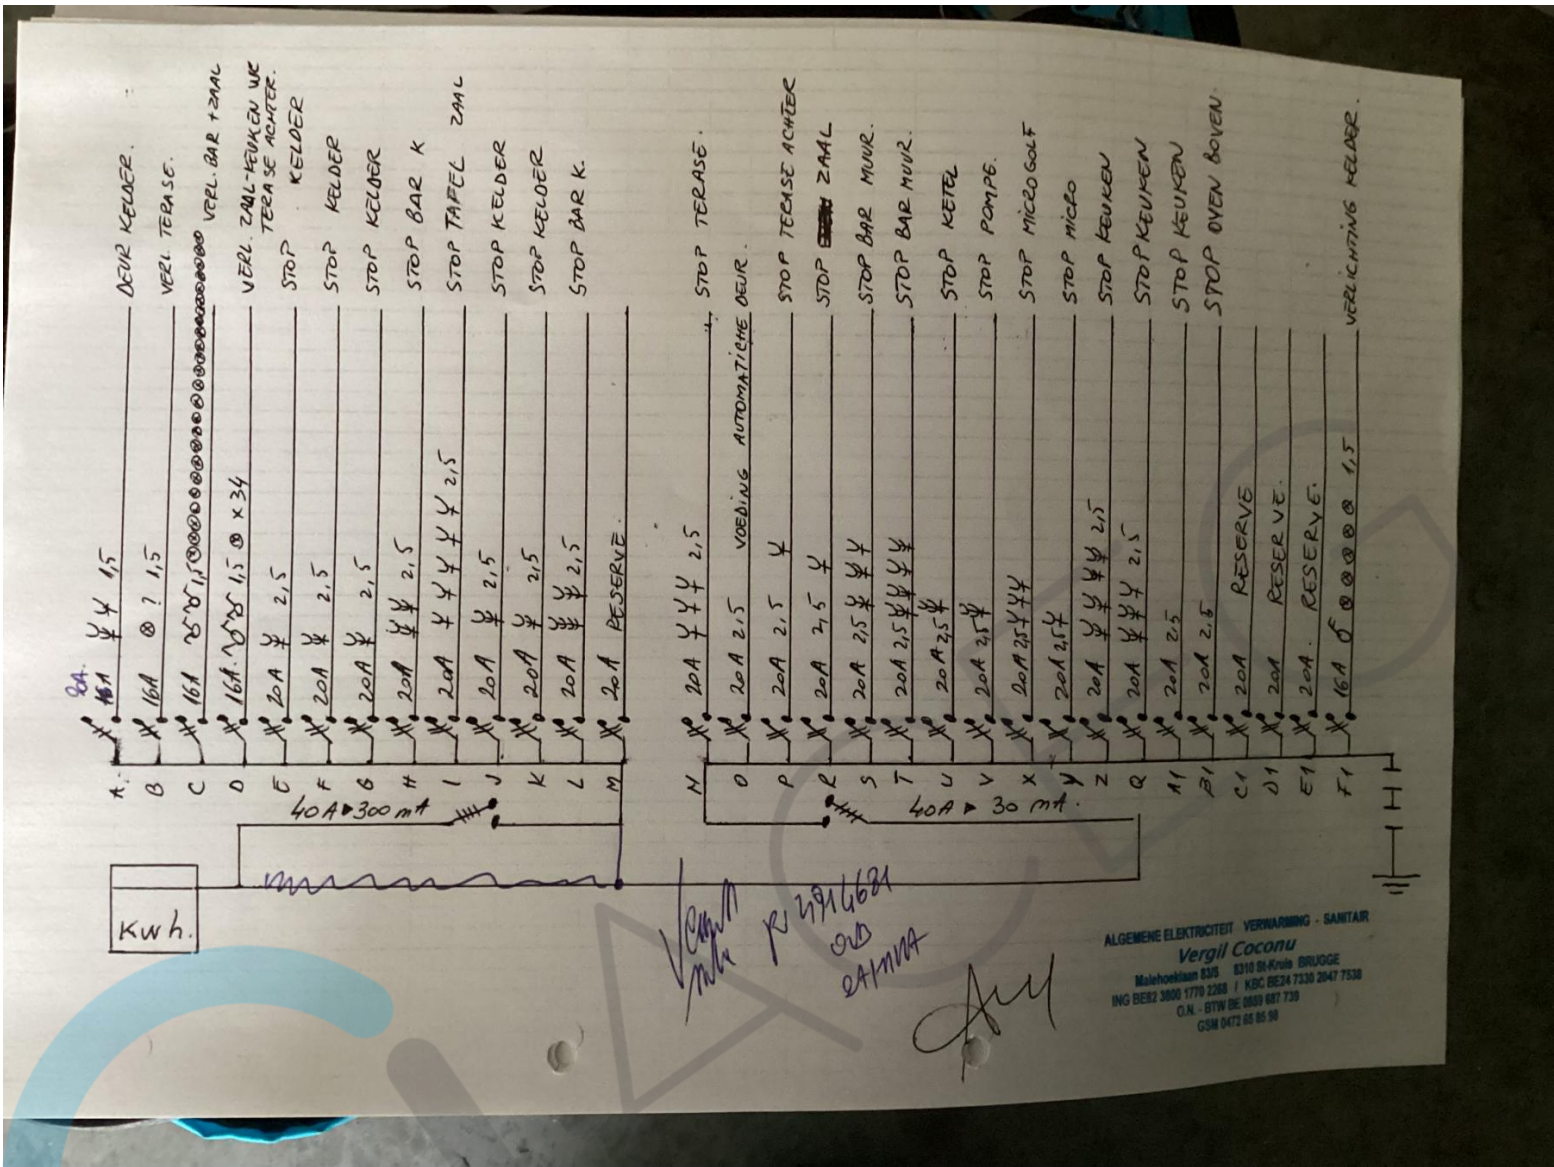 A. 16A 20A. 1,5 DEUR KELDER.
B 16A ? 1,5 VERL. TERASE.
C 16A 1,5 VERL. BAR + ZAAL
D 16A. 1,5 x 34 VERL. ZAAL-KEUKEN WC
TERASE ACHTER.
E 20A 2,5 STOP KELDER
F 20A 2,5 STOP KELDER
G 20A 2,5 STOP KELDER
H 20A 2,5 STOP BAR K
I 20A 2,5 STOP TAFEL ZAAL
J 20A 2,5 STOP KELDER
K 20A 2,5 STOP KELDER
L 20A 2,5 STOP BAR K.
M 20A RESERVE.
N 20A 2,5 STOP TERASE.
O 20A 2,5 VOEDING AUTOMATICHE DEUR.
P 20A 2,5 STOP TERASE ACHTER
R 20A 2,5 STOP ZAAL
S 20A 2,5 STOP BAR MUUR.
T 20A 2,5 STOP BAR MUUR.
U 20A 2,5 STOP KETEL
V 20A 2,5 STOP POMPE.
X 20A 2,5 STOP MICROGOLF
Y 20A 2,5 STOP MICRO
Z 20A 2,5 STOP KEUKEN
Q 20A 2,5 STOP KEUKEN
A1 20A 2,5 STOP KEUKEN
B1 20A 2,5 STOP OVEN BOVEN.
C1 20A RESERVE
D1 20A RESERVE.
E1 20A. RESERVE.
F1 16A 1,5 VERLICHTING KELDER.
40A 300 mA
40A 30 mA.
Kwh.
ALGEMENE ELEKTRICITEIT VERWARMING - SANITAIR
Vergil Coconu
Malehoeklaan 83/5 8310 St-Kruis BRUGGE
ING BE82 3800 1770 2268 / KBC BE24 7330 2047 7538
O.N. - BTW BE 0889 687 739
GSM 0472 65 85 98
CACEG